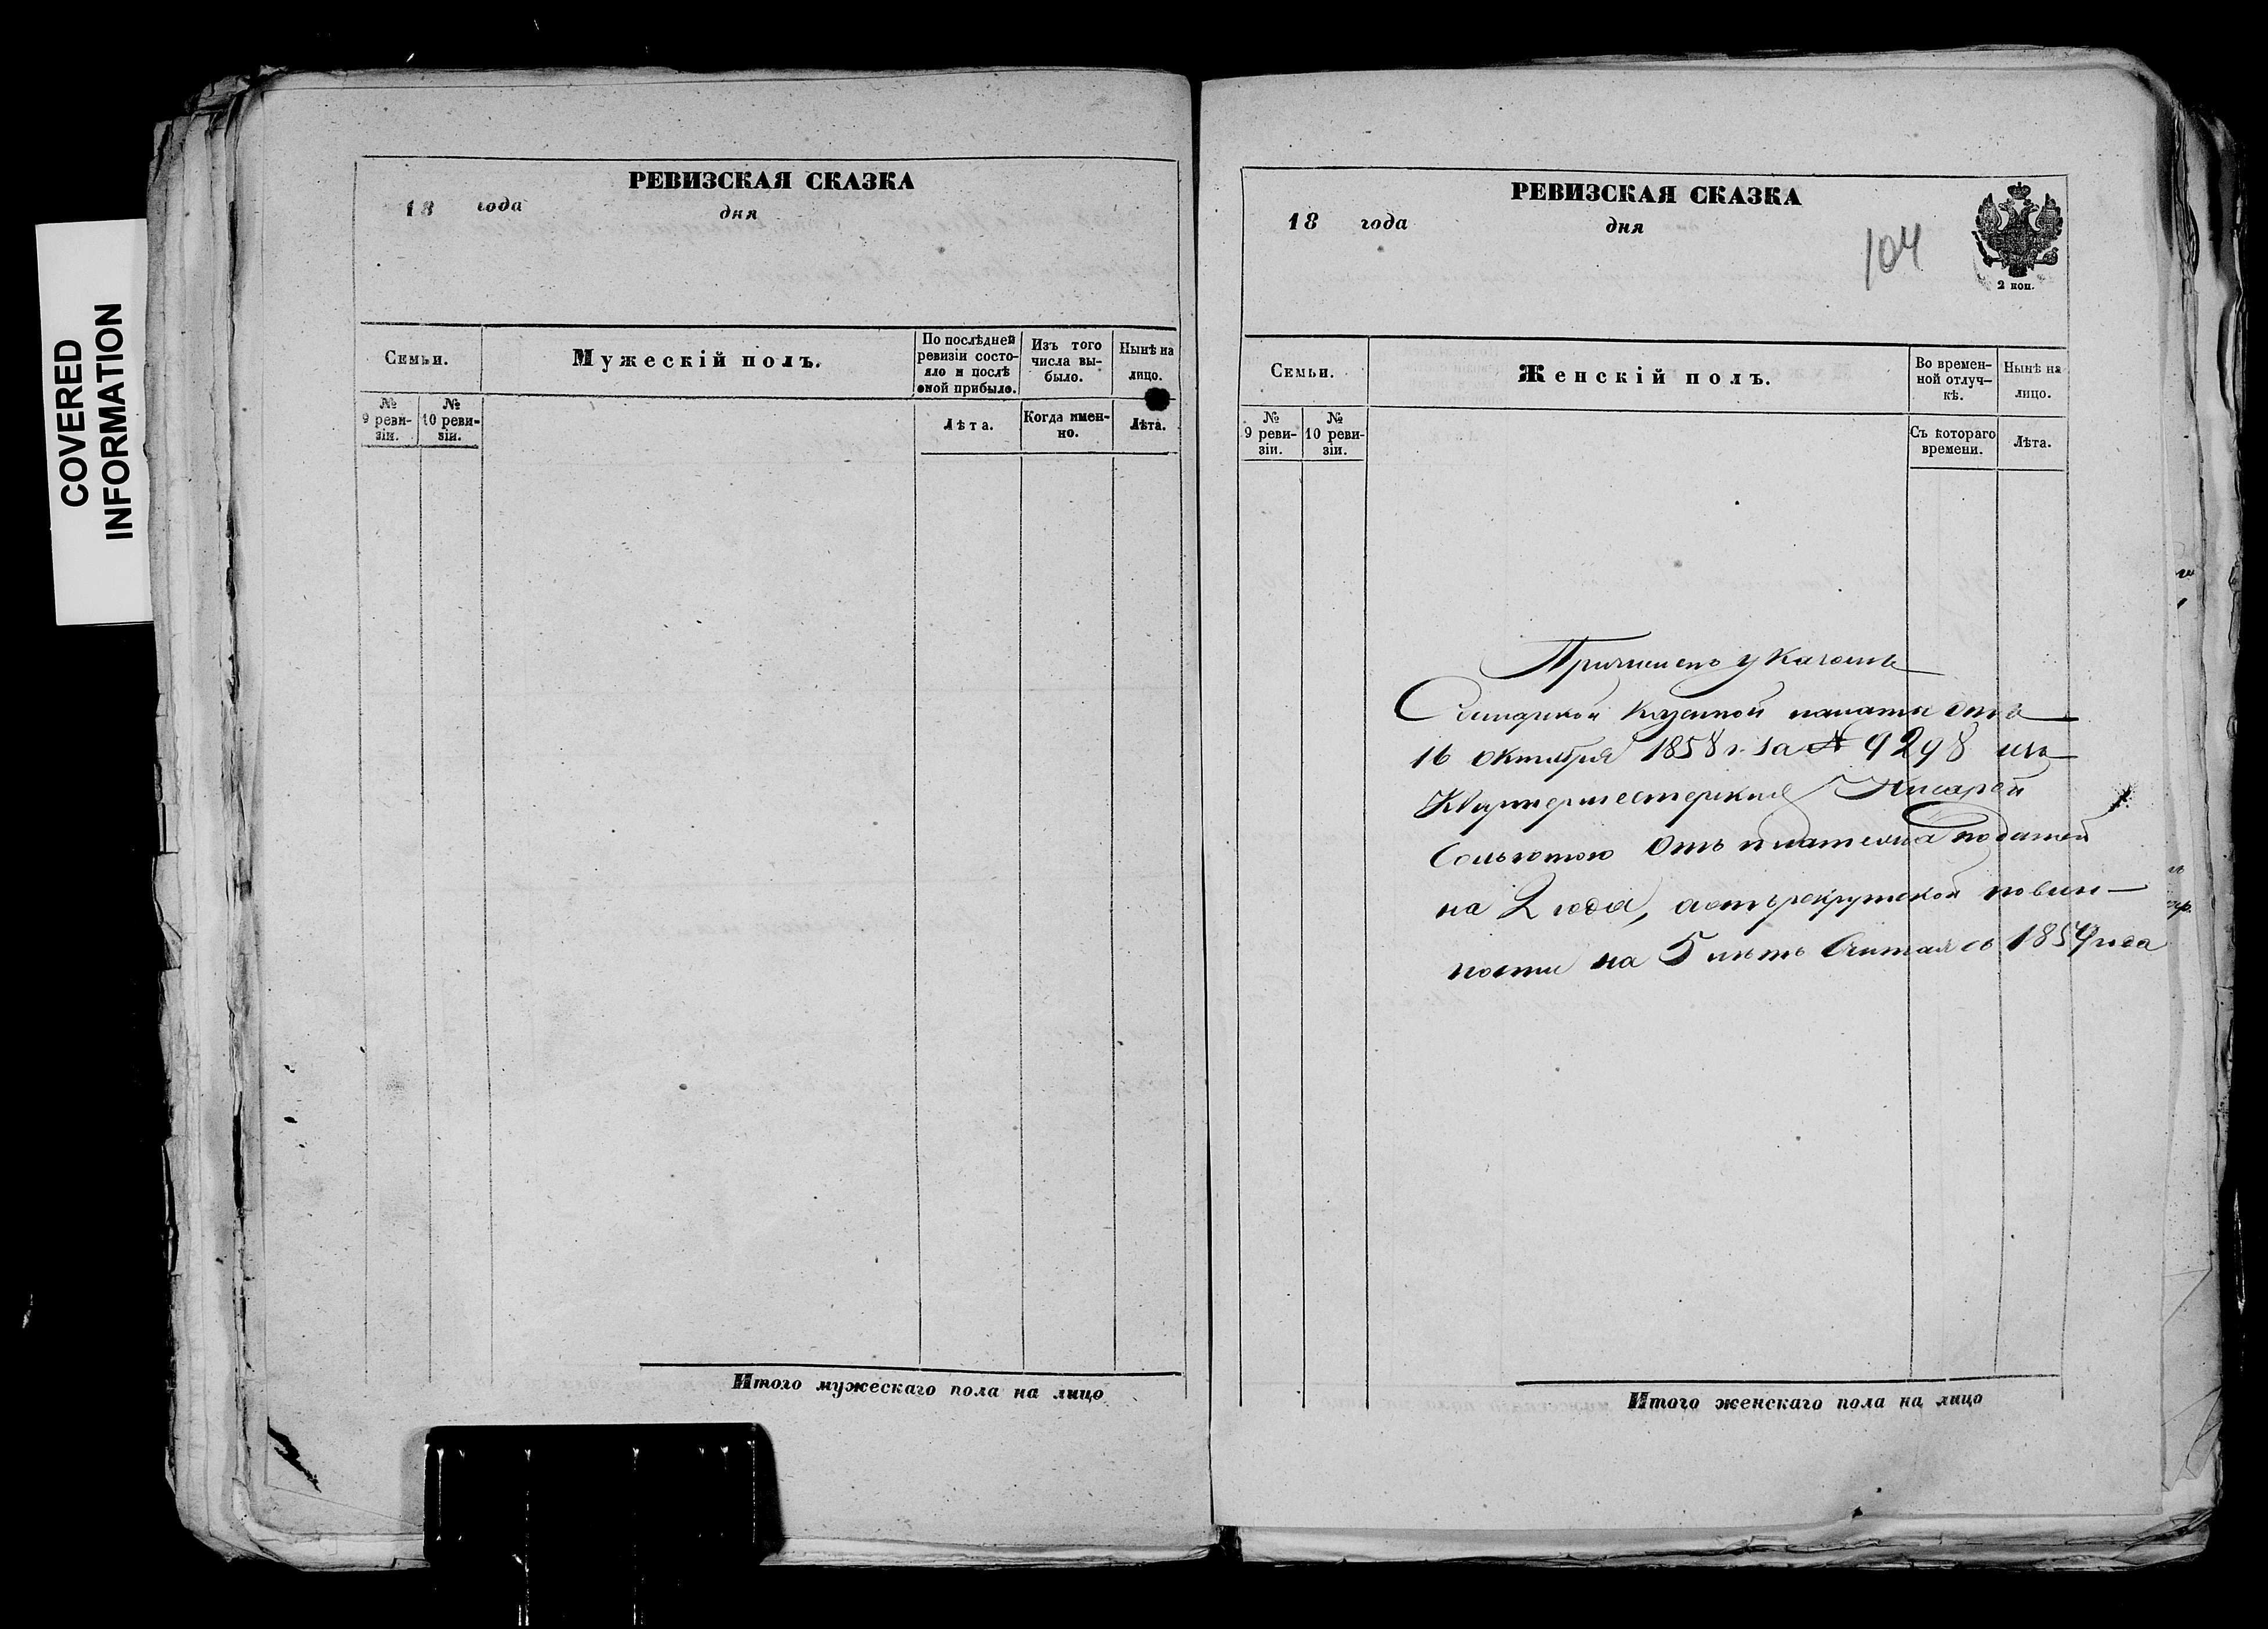 COVERED
INFORMATION
РЕВИЗСКАЯ СКАЗКА
18 года дня
Семьи.
Мужескій полъ.
По послѣдней ревизіи состояло и послѣ оной прибыло.
Изъ того числа выбыло.
Нынѣ на лицо.
№ 9 ревизіи.
№ 10 ревизіи.
Лѣта.
Когда именно.
Лѣта.
Итого мужескаго пола на лицо
РЕВИЗСКАЯ СКАЗКА
18 года дня
104
2 коп.
Семьи.
Женскій полъ.
Во временной отлучкѣ.
Нынѣ на лицо.
№ 9 ревизіи.
№ 10 ревизіи.
Съ котораго времени.
Лѣта.
Причисленъ указомъ
Самарской Казенной палаты отъ
16 Октября 1858 г. за № 9298 изъ
Писарей
Сольготою Отъ платежа податей
на 2 года, а отъ рекрутской повин-
ности на 5 лѣтъ Считая съ 1859 года
Итого женскаго пола на лицо